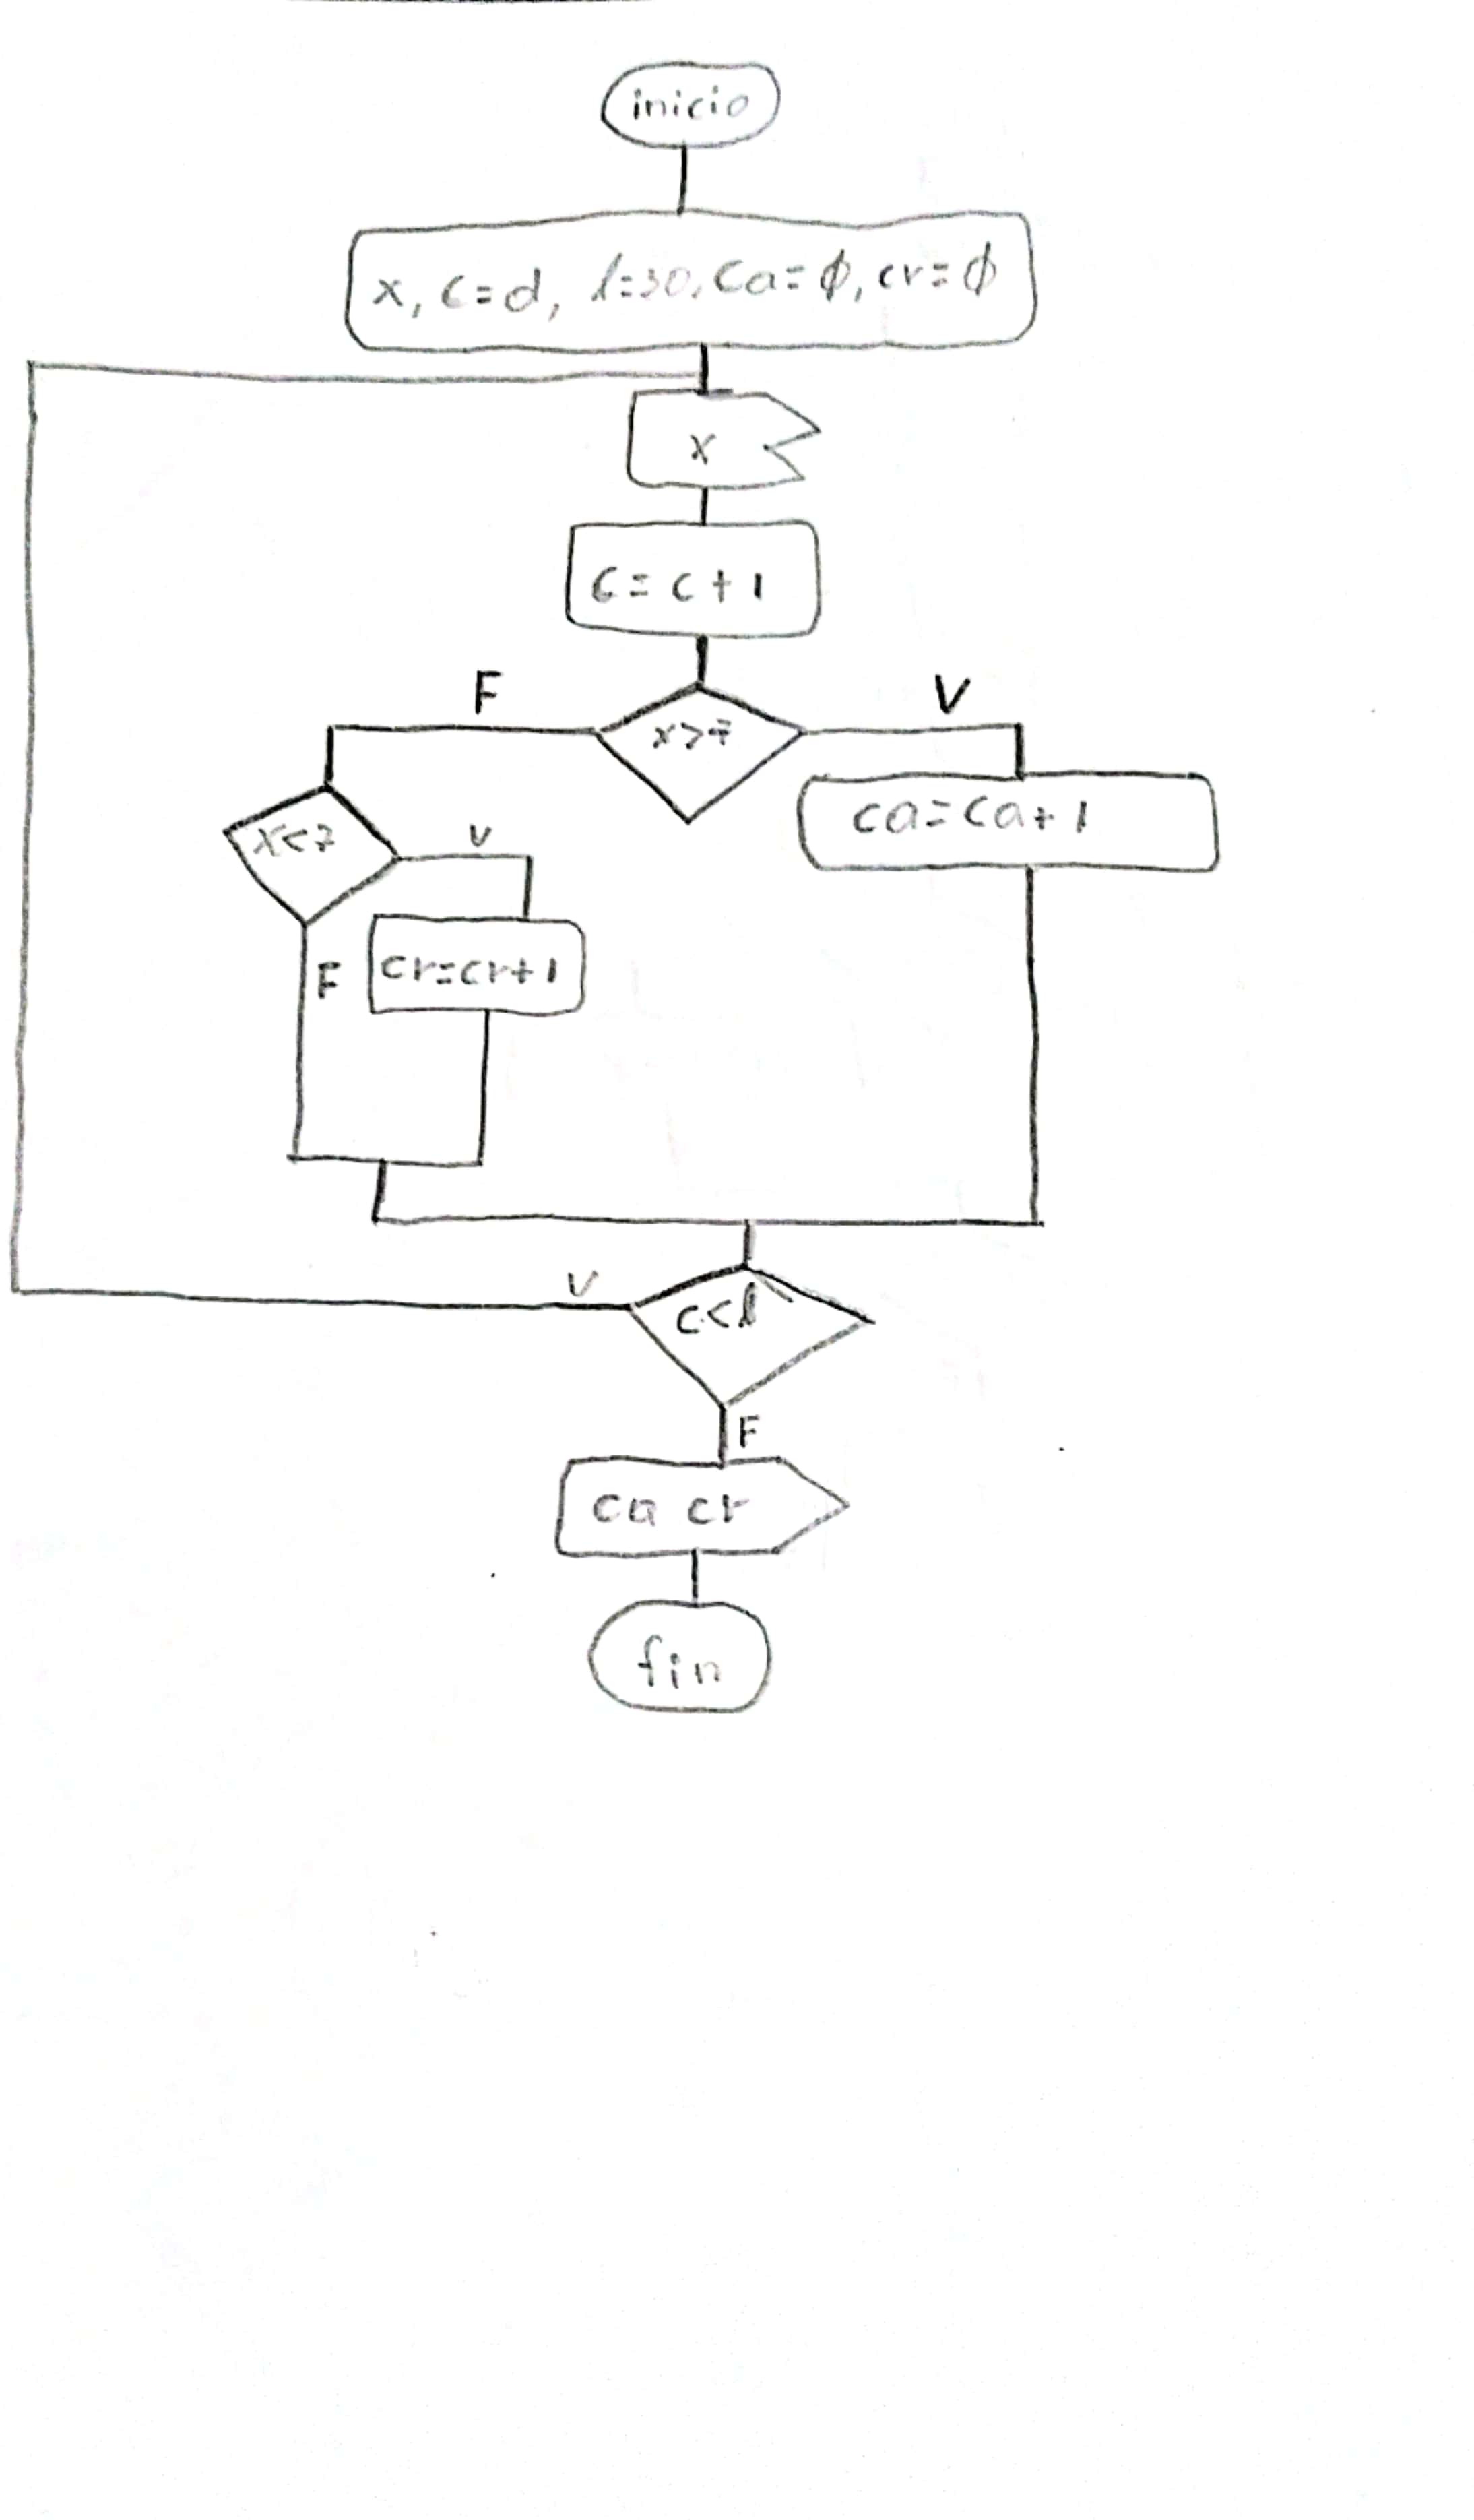 inicio
x, c=d, l=30, ca=ϕ, cr=ϕ
x
c=c+1
F
V
x>7
x<7
v
ca=ca+1
F
cr=cr+1
V
c<l
F
ca cr
fin